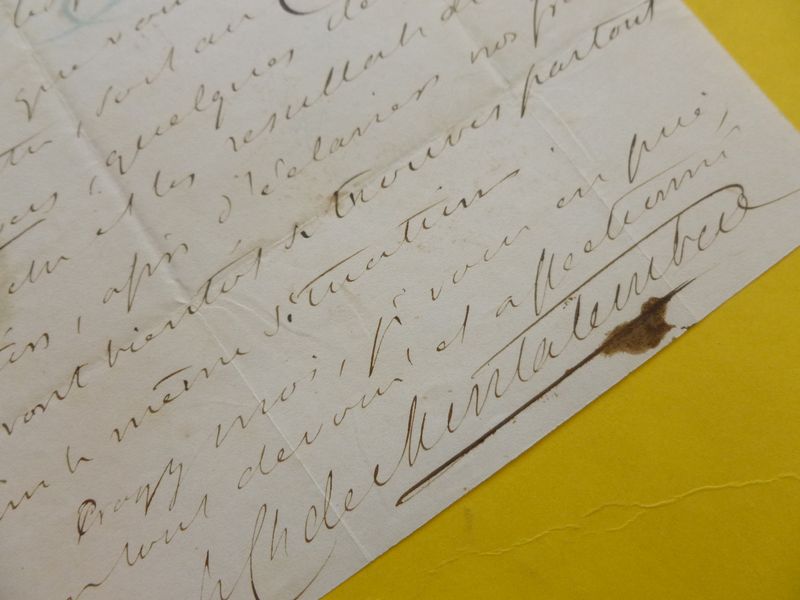 que vou
soit au
quelques de
et les resultats d
, après d'éclairer nos fr
ront bientôt se trouver partout
la même situation.
Croyez moi, je vous en prie,
tout dévoué et affectionné
Ch de Montalembert